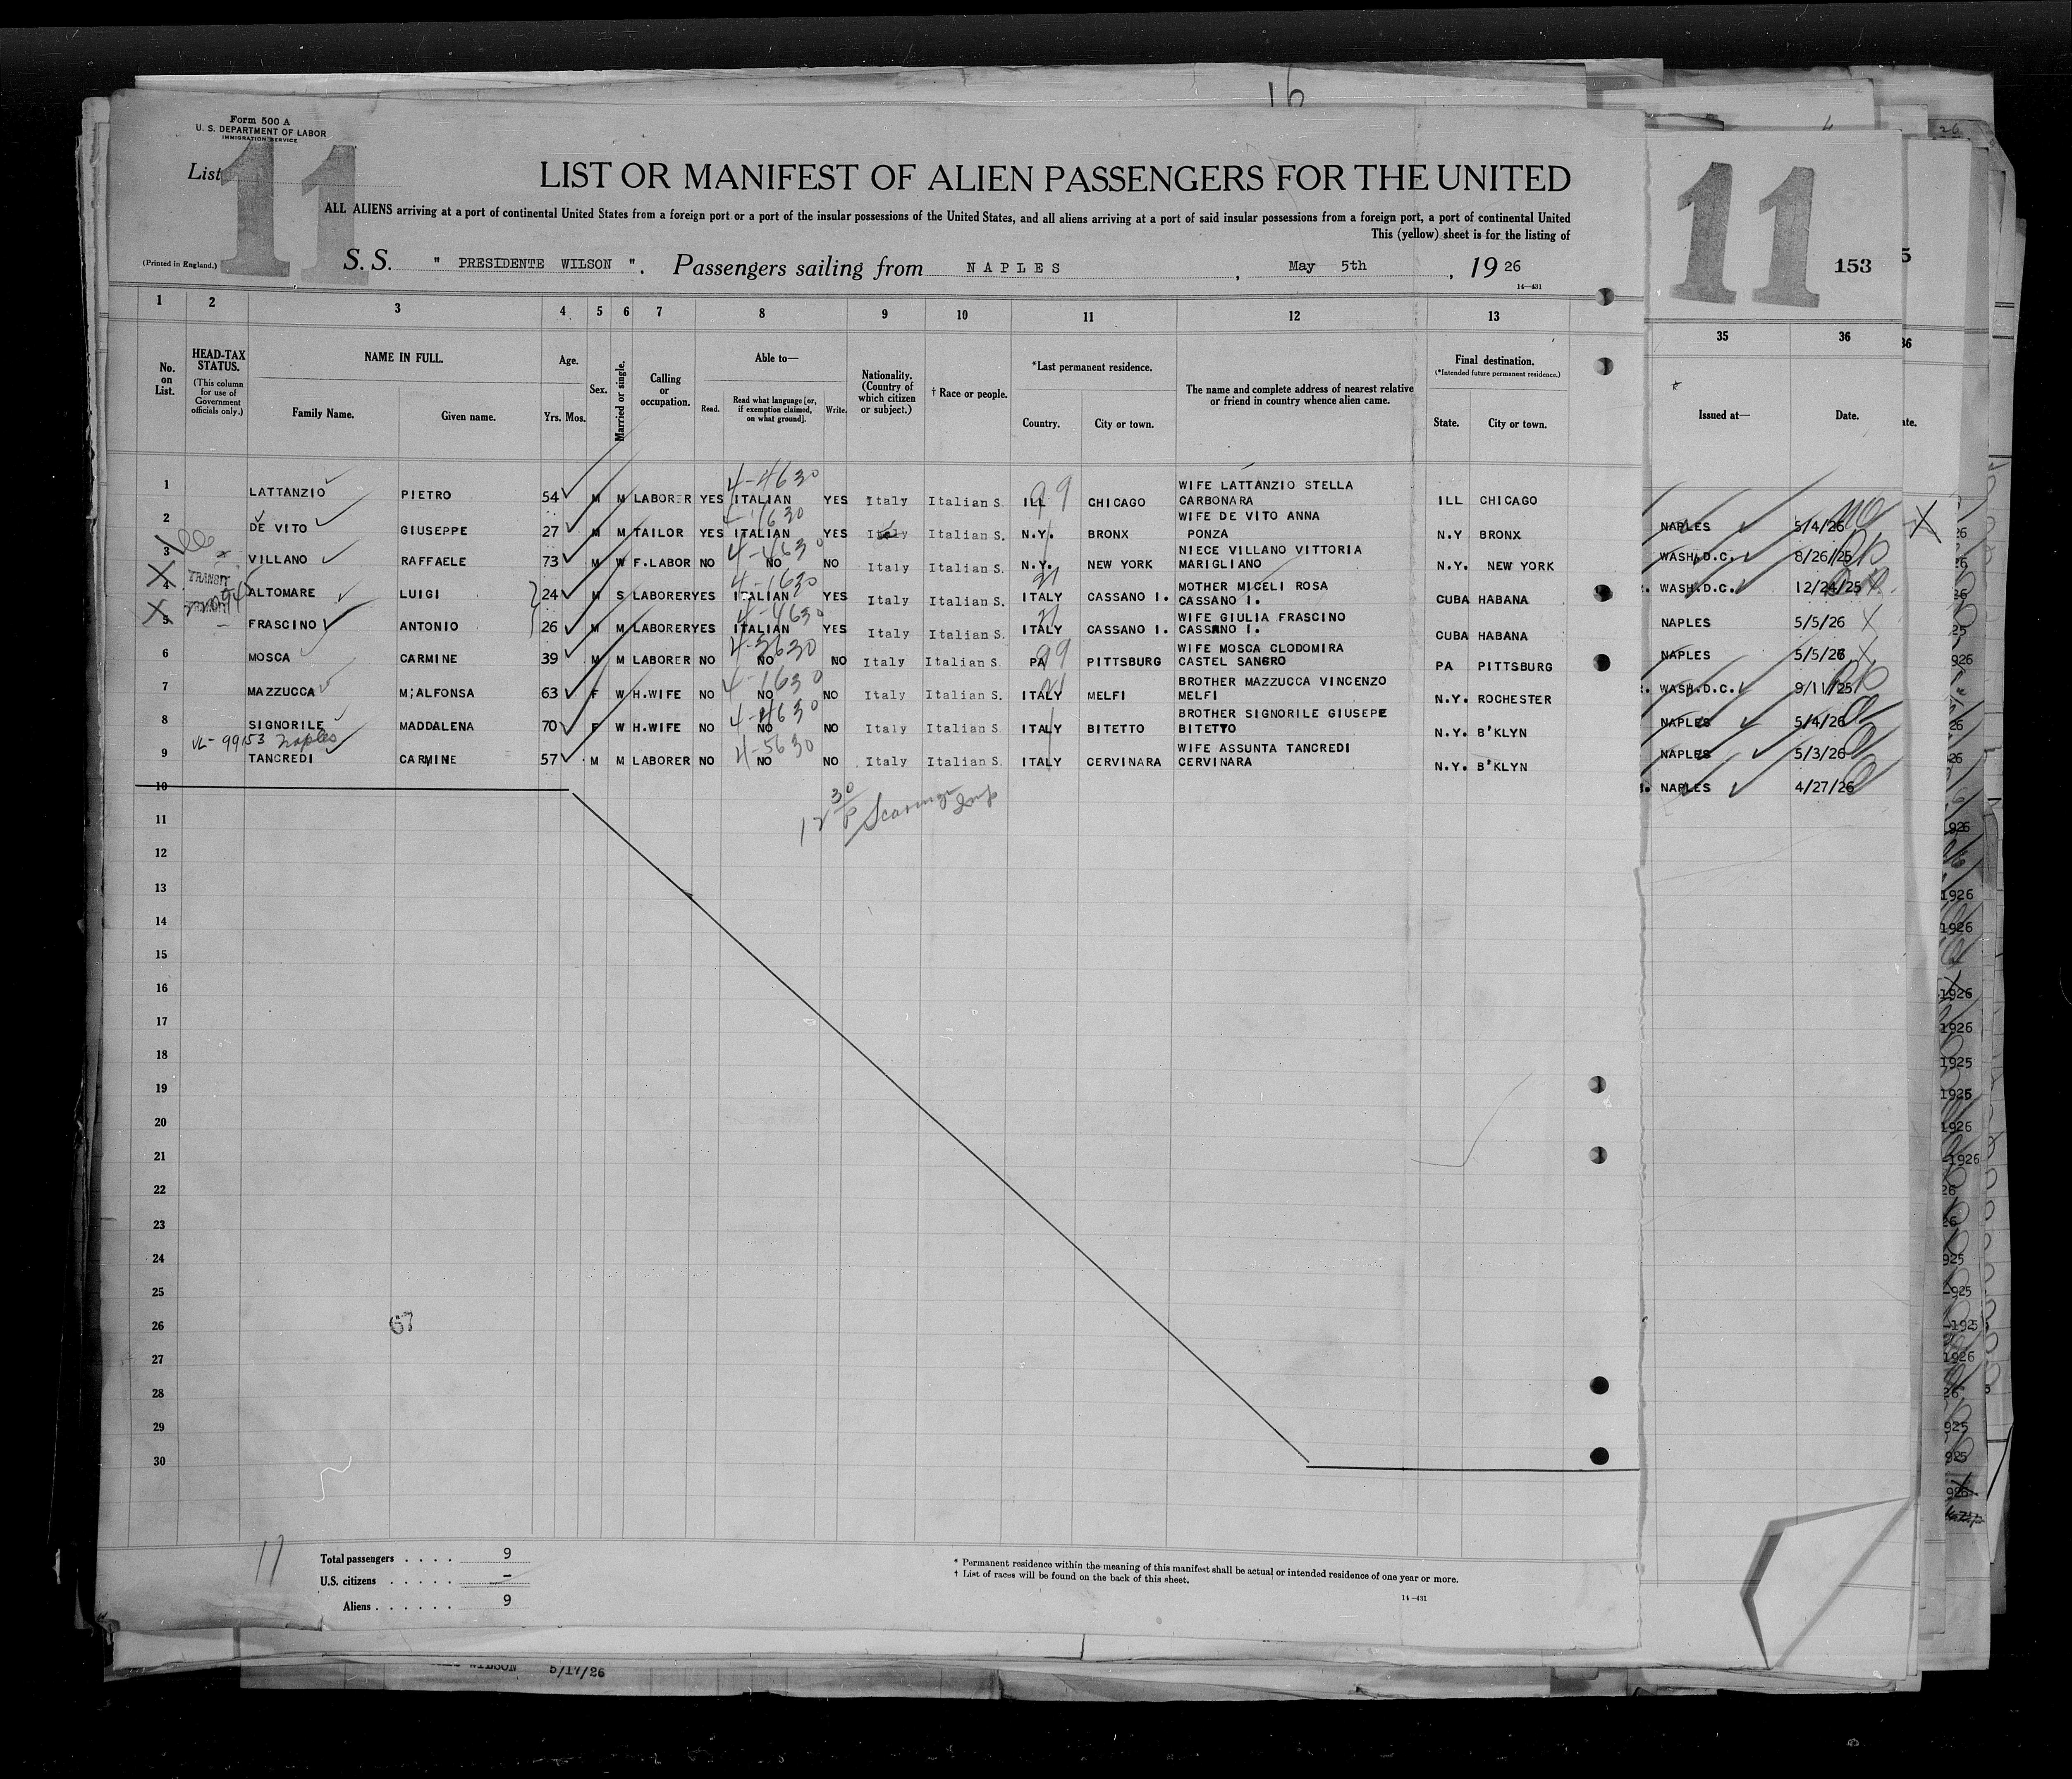 16
Form 500 A
U. S. DEPARTMENT OF LABOR
IMMIGRATION SERVICE
List
11
LIST OR MANIFEST OF ALIEN PASSENGERS FOR THE UNITED
ALL ALIENS arriving at a port of continental United States from a foreign port or a port of the insular possessions of the United States, and all aliens arriving at a port of said insular possessions from a foreign port, a port of continental United
This (yellow) sheet is for the listing of
(Printed in England.)
S. S. " PRESIDENTE WILSON ". Passengers sailing from NAPLES, May 5th, 19 26
14—431
11
153
1 2 3 4 5 6 7 8 9 10 11 12 13 35 36
No. on List.
HEAD-TAX STATUS.
(This column for use of Government officials only.)
NAME IN FULL.
Family Name. Given name.
Age.
Yrs. Mos.
Sex.
Married or single.
Calling or occupation.
Able to—
Read. Read what language [or, if exemption claimed, on what ground]. Write.
Nationality. (Country of which citizen or subject.)
† Race or people.
*Last permanent residence.
Country. City or town.
The name and complete address of nearest relative or friend in country whence alien came.
Final destination.
(*Intended future permanent residence.)
State. City or town.
Issued at— Date.
1 LATTANZIO PIETRO 54 M M LABORER YES ITALIAN YES Italy Italian S. ILL CHICAGO WIFE LATTANZIO STELLA CARBONARA ILL CHICAGO
4-4630
99
2 DE VITO GIUSEPPE 27 M M TAILOR YES ITALIAN YES Italy Italian S. N.Y. BRONX WIFE DE VITO ANNA PONZA N.Y BRONX
4-1630
3 VILLANO RAFFAELE 73 M W F.LABOR NO NO NO Italy Italian S. N.Y. NEW YORK NIECE VILLANO VITTORIA MARIGLIANO N.Y. NEW YORK
4-4630
4 TRANSIT ALTOMARE LUIGI 24 M S LABORER YES ITALIAN YES Italy Italian S. ITALY CASSANO I. MOTHER MICELI ROSA CASSANO I. CUBA HABANA
4-1630
5 FRASCINO ANTONIO 26 M M LABORER YES ITALIAN YES Italy Italian S. ITALY CASSANO I. WIFE GIULIA FRASCINO CASSANO I. CUBA HABANA
4-4630
6 MOSCA CARMINE 39 M M LABORER NO NO NO Italy Italian S. PA PITTSBURG WIFE MOSCA CLODOMIRA CASTEL SANGRO PA PITTSBURG
4-3630
99
7 MAZZUCCA M;ALFONSA 63 F W H.WIFE NO NO NO Italy Italian S. ITALY MELFI BROTHER MAZZUCCA VINCENZO MELFI N.Y. ROCHESTER
4-1630
8 SIGNORILE MADDALENA 70 F W H.WIFE NO NO NO Italy Italian S. ITALY BITETTO BROTHER SIGNORILE GIUSEPE BITETTO N.Y. B'KLYN
4-4630
VL- 99153 Naples
9 TANCREDI CARMINE 57 M M LABORER NO NO NO Italy Italian S. ITALY CERVINARA WIFE ASSUNTA TANCREDI CERVINARA N.Y. B'KLYN
4-5630
NAPLES 5/4/26
WASH.D.C. 8/26/25
WASH.D.C. 12/24/25
NAPLES 5/5/26
NAPLES 5/5/26
WASH.D.C. 9/11/25
NAPLES 5/4/26
NAPLES 5/3/26
NAPLES 4/27/26
10
11
12
13
14
15
16
17
18
19
20
21
22
23
24
25
26
27
28
29
30
67
11
Total passengers . . . . 9
U.S. citizens . . . . . –
Aliens . . . . . . 9
* Permanent residence within the meaning of this manifest shall be actual or intended residence of one year or more.
† List of races will be found on the back of this sheet.
14—431
WILSON 5/17/26